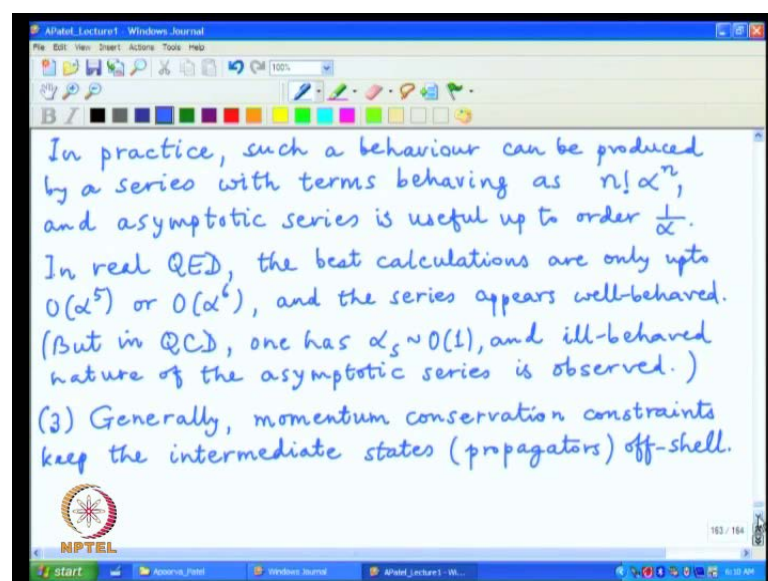 APatel_Lecture1 - Windows Journal
File Edit View Insert Actions Tools Help
100%
B I
In practice, such a behaviour can be produced
by a series with terms behaving as n! α^n,
and asymptotic series is useful up to order 1/α.
In real QED, the best calculations are only upto
O(α^5) or O(α^6), and the series appears well-behaved.
(But in QCD, one has α_s ~ O(1), and ill-behaved
nature of the asymptotic series is observed.)
(3) Generally, momentum conservation constraints
keep the intermediate states (propagators) off-shell.
NPTEL
163 / 164
start Apoorva_Patel Windows Journal APatel_Lecture1 - Wi... 6:10 AM